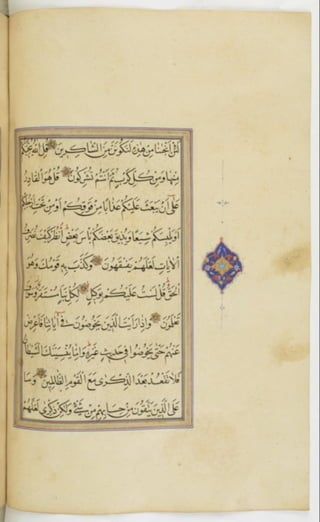 لئن أنجىنا من هذه لنكونن من الشاكرين قل الله ينجيكم
منها ومن كل كرب ثم أنتم تشركون قل هو القادر
على أن يبعث عليكم عذابا من فوقكم أو من تحت أرجلكم
أو يلبسكم شيعا ويذيق بعضكم بأس بعض أنظر كيف نصرف
الآيات لعلهم يفقهون وكذب به قومك وهو
الحق قل لست عليكم بوكيل لكل نبإ مستقر وسوف
تعلمون وإذا رأيت الذين يخوضون في آياتنا فأعرض
عنهم حتى يخوضوا في حديث غيره وإما ينسينك الشيطان
فلا تقعد بعد الذكرى مع القوم الظالمين وما
على الذين يتقون من حسابهم من شيء ولكن ذكرى لعلهم